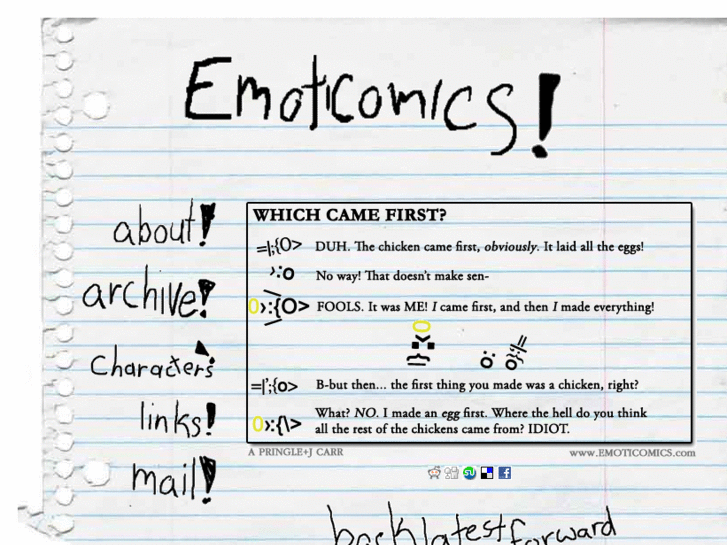 Emoticomics!
about!
archive!
characters!
links!
mail!
WHICH CAME FIRST?
=|;{O> DUH. The chicken came first, obviously. It laid all the eggs!
›:o No way! That doesn't make sen-
0›:{O> FOOLS. It was ME! I came first, and then I made everything!
=|';{o> B-but then... the first thing you made was a chicken, right?
0›:{\> What? NO. I made an egg first. Where the hell do you think
all the rest of the chickens came from? IDIOT.
A PRINGLE+J CARR
www.EMOTICOMICS.com
back latest forward